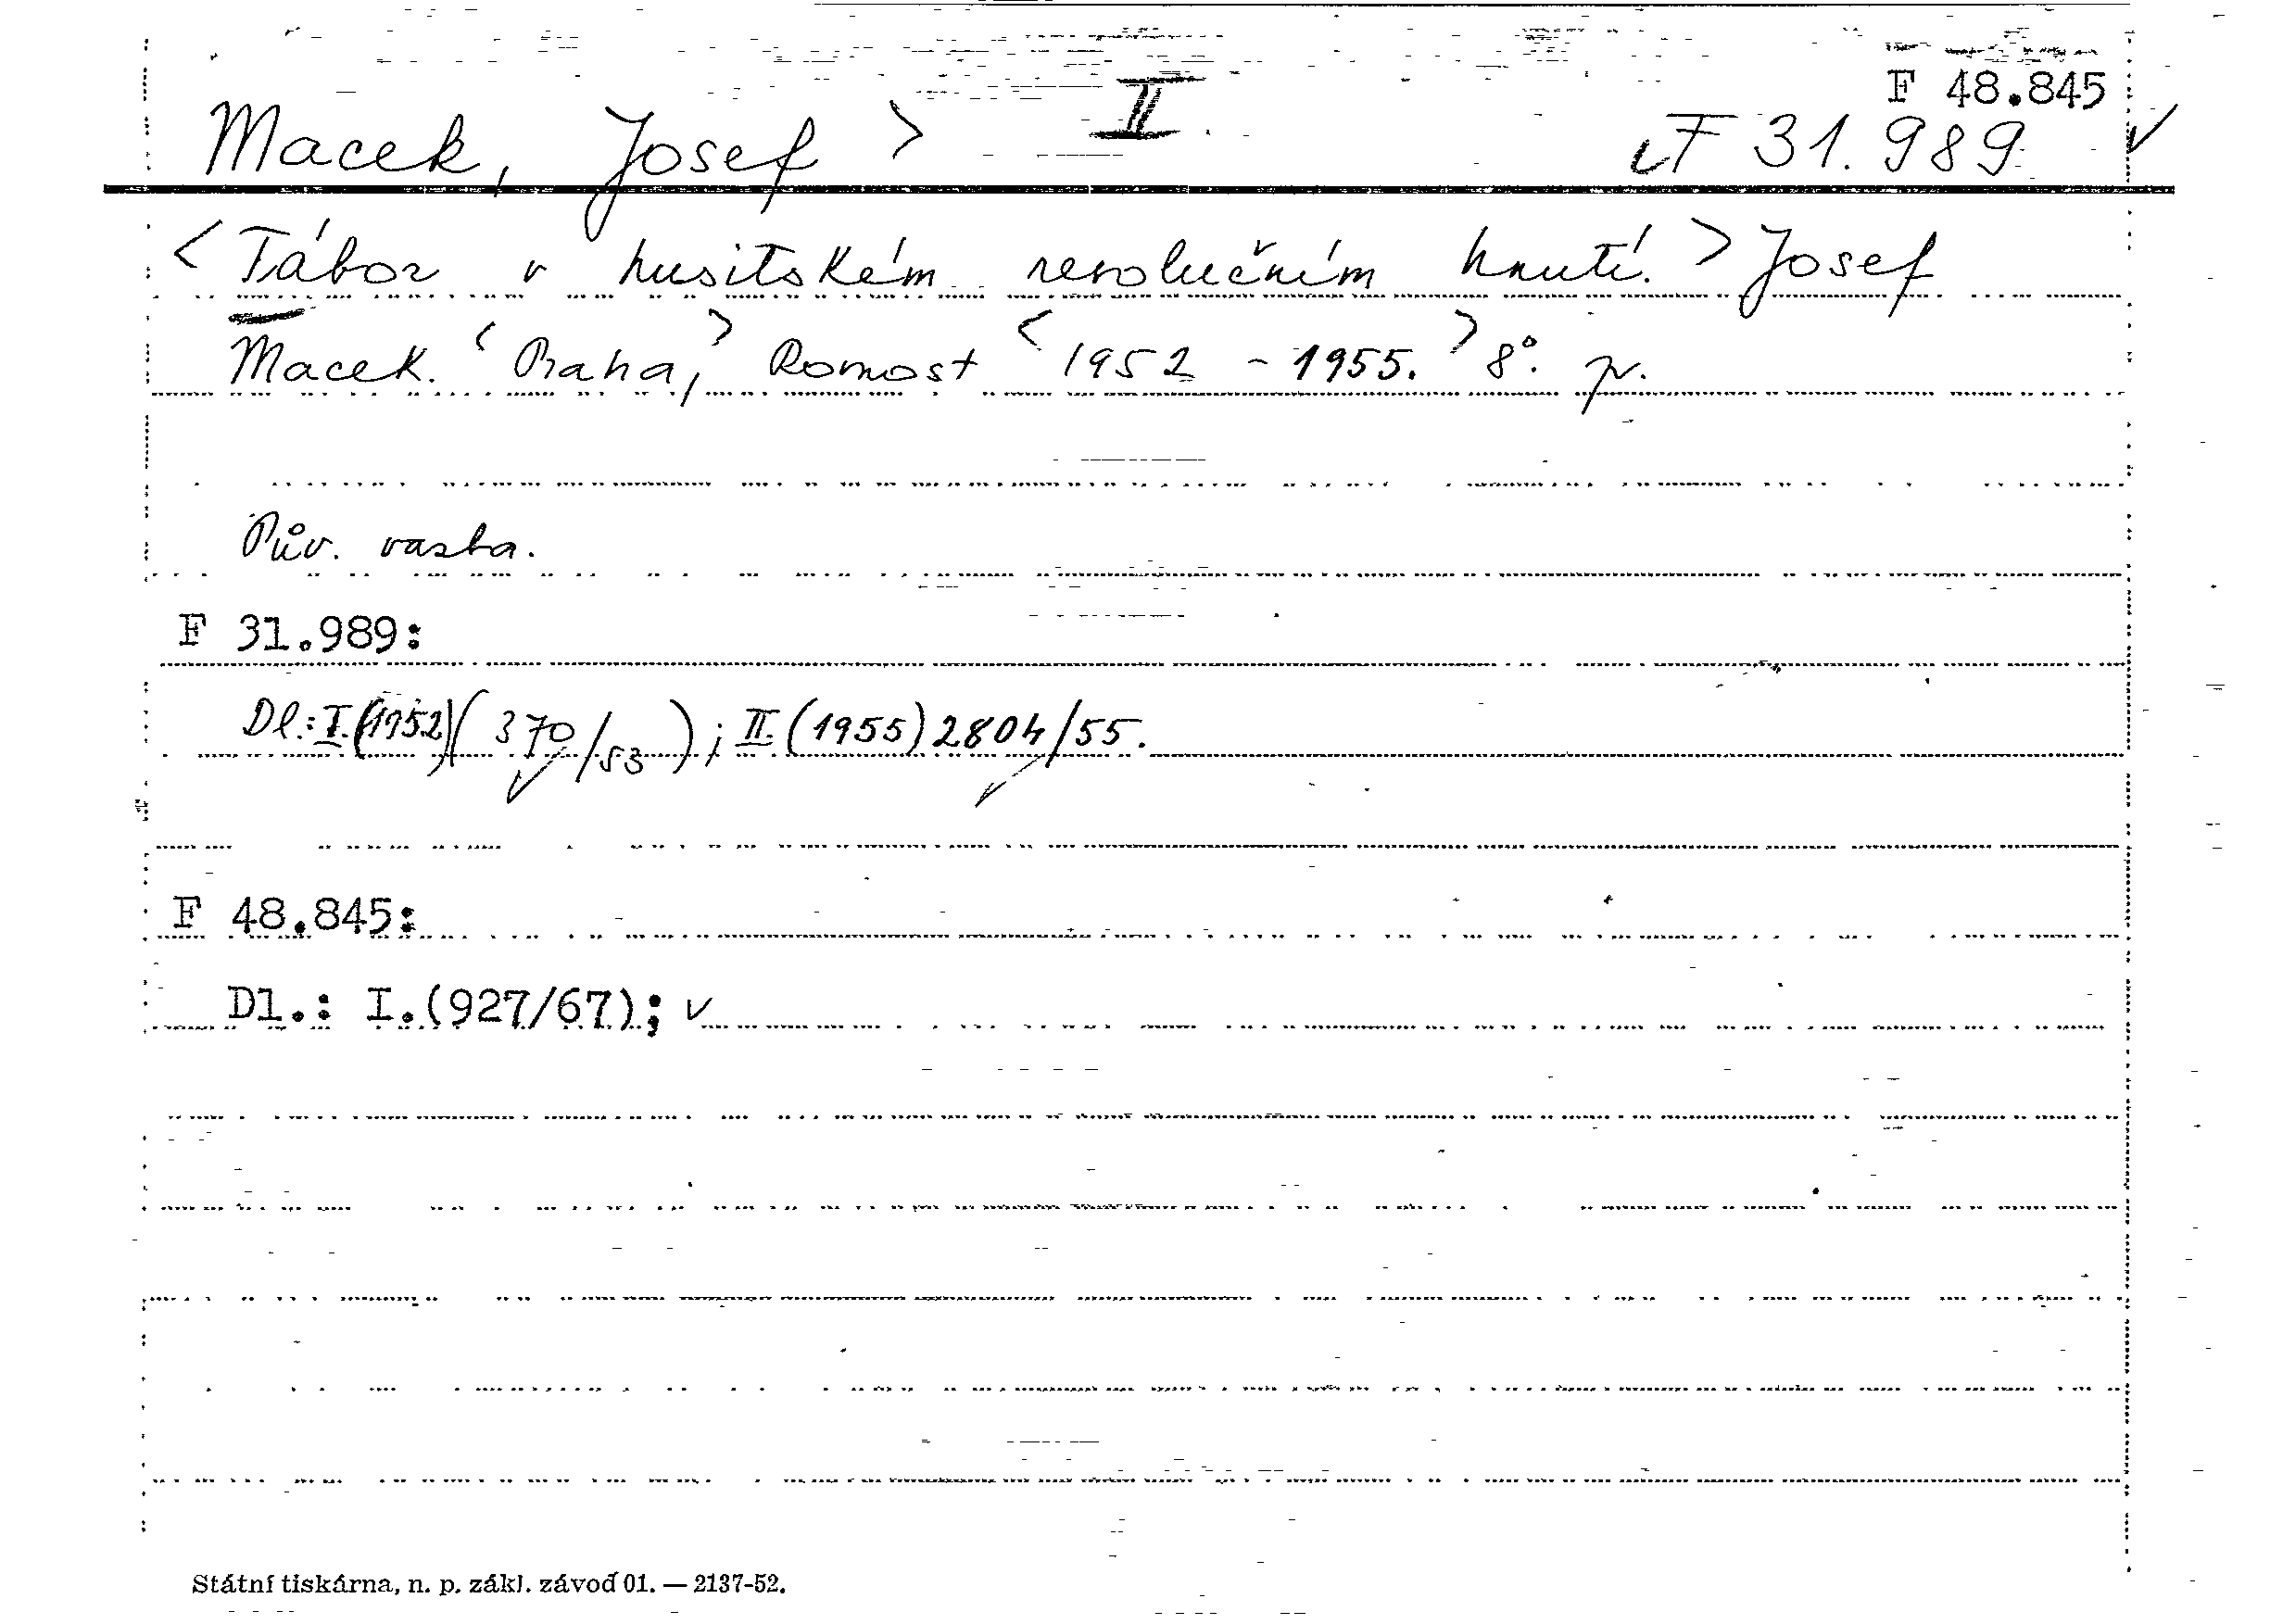 F 48.845
Macek, Josef > II F 31.989 ✓
< Tábor v husitském revolučním hnutí. > Josef
Macek. < Praha, > Rovnost < 1952 - 1955. > 8°. pv.
Pův. vazba.
F 31.989:
Dl.: I.(1952)(370/53); II (1955) 2804/55.
F 48.845:
Dl.: I.(927/67); ✓
Státní tiskárna, n. p. zákl. závod 01. — 2137-52.